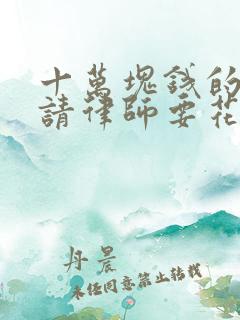 十萬塊錢的
請律師要花
丹晨
未經同意禁止轉載